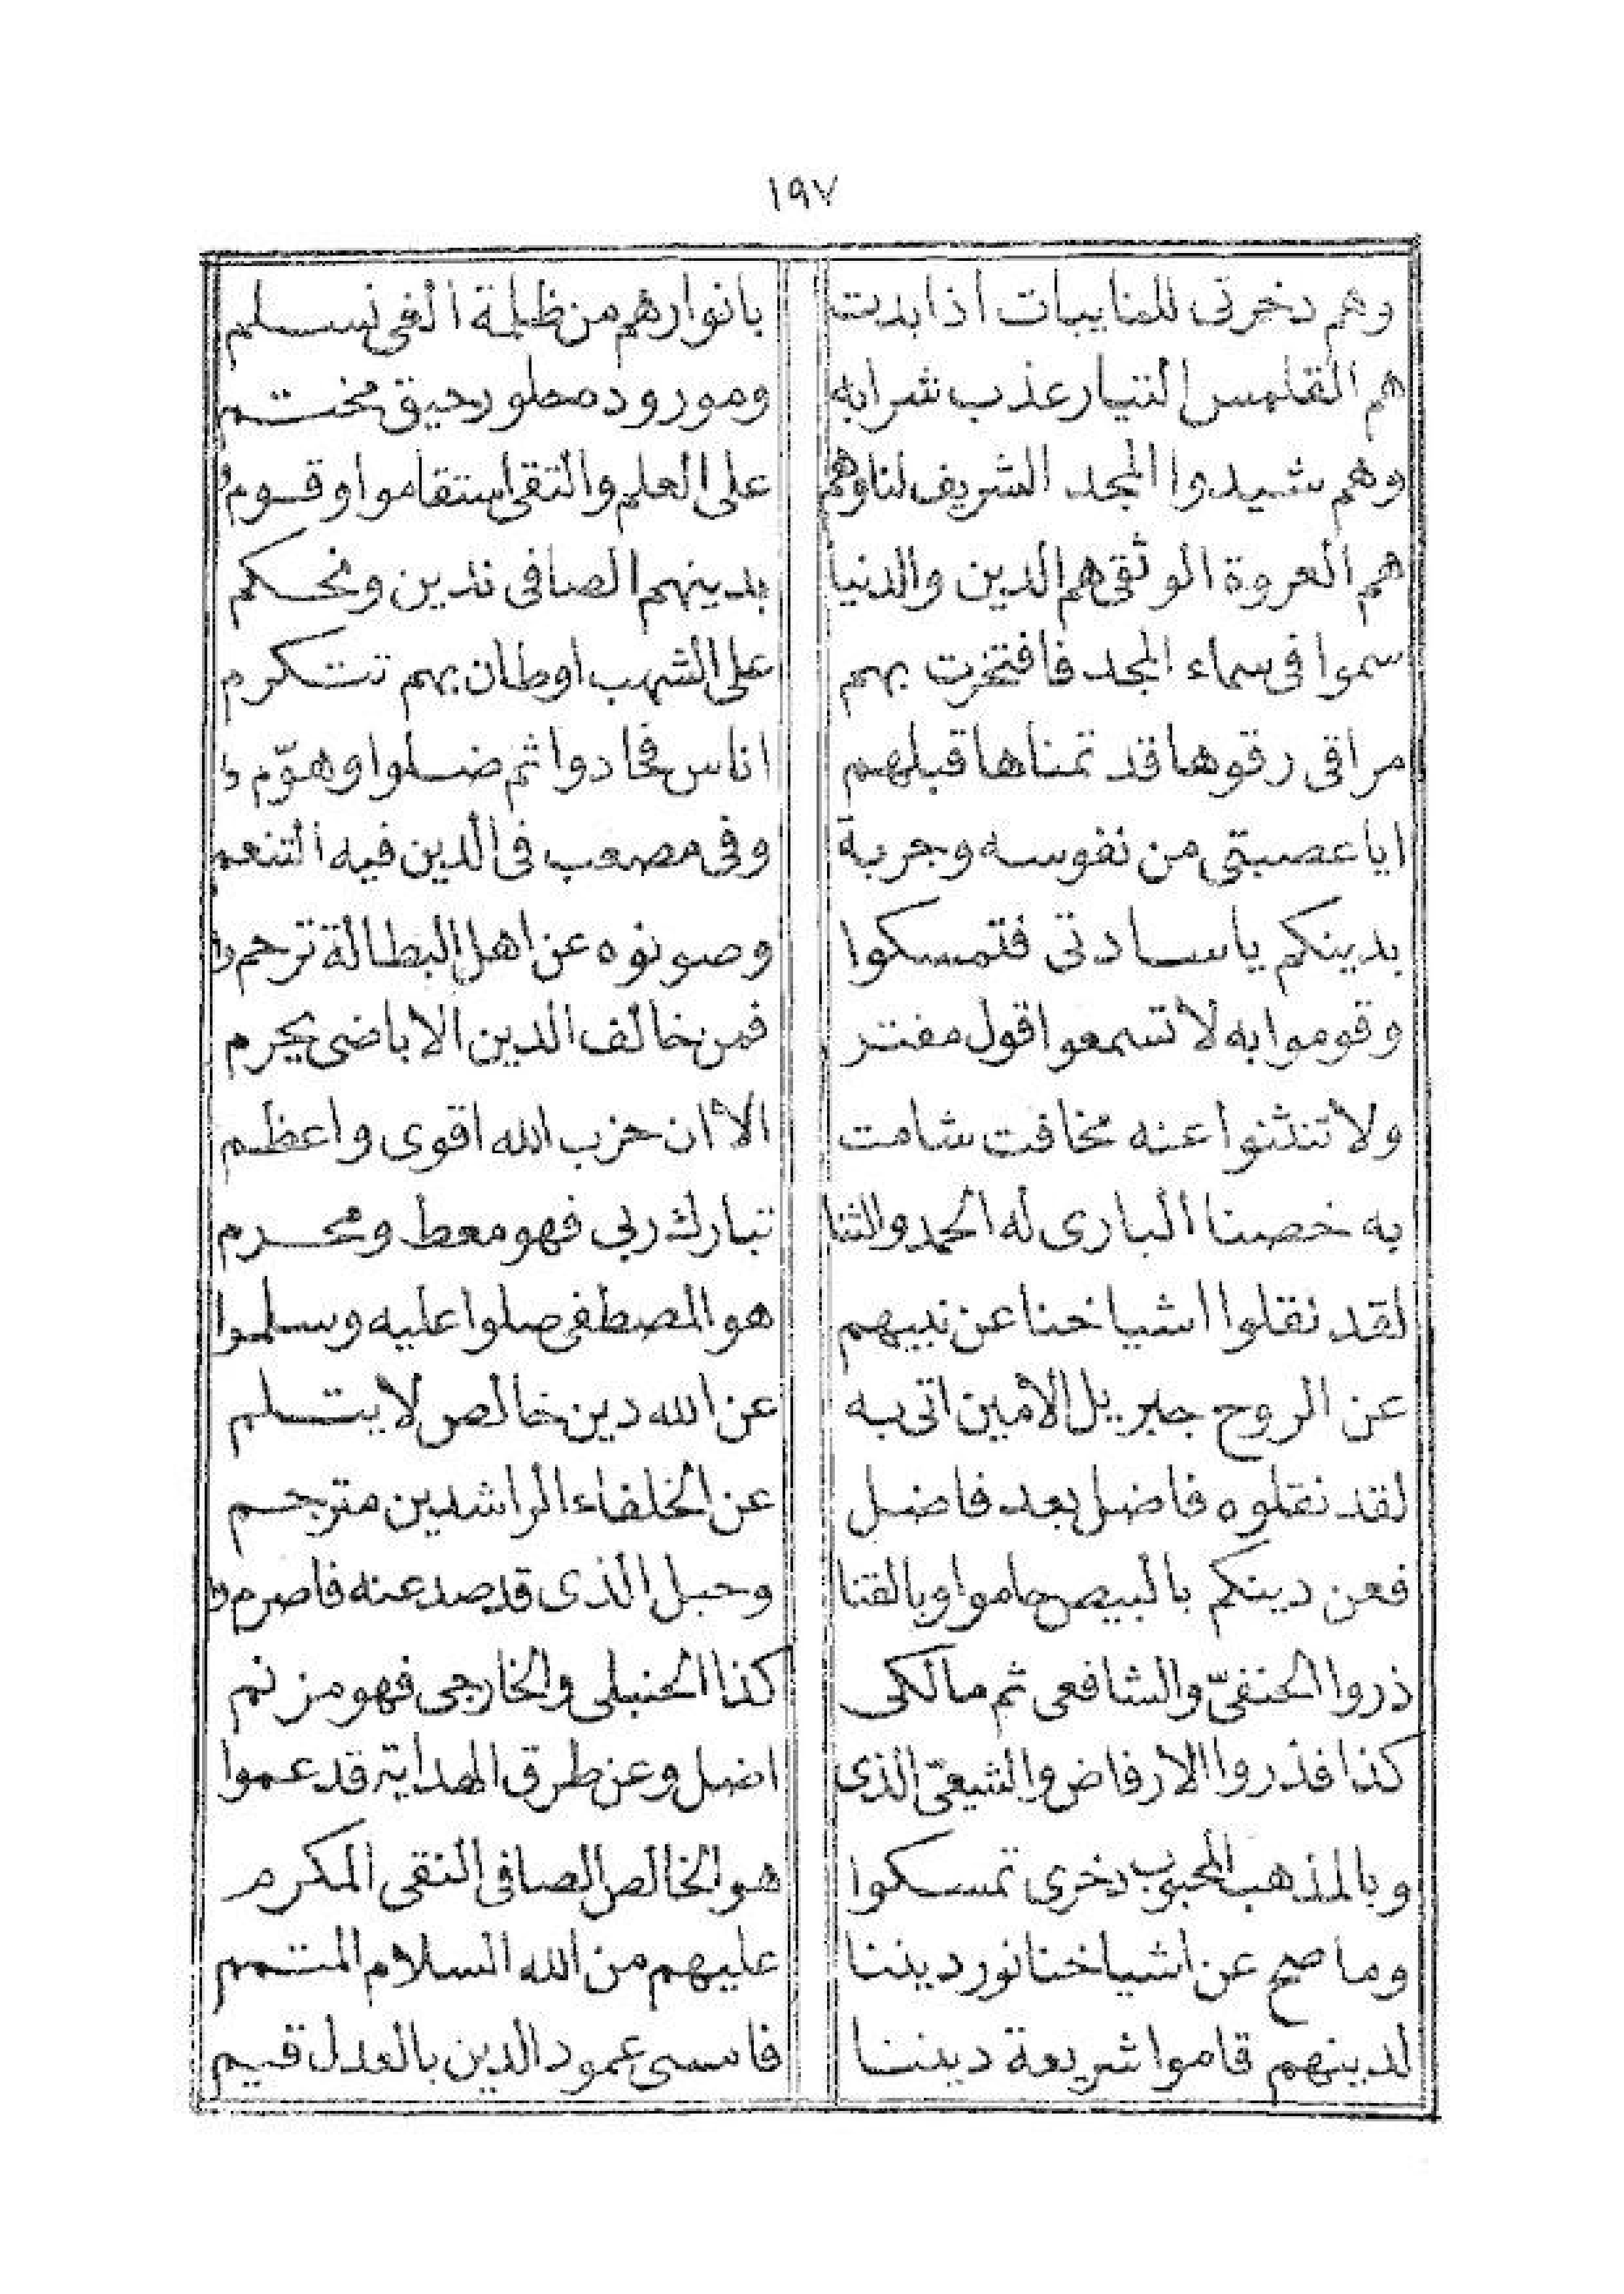 ١٩٧
وهم دخرتى للنايبات اذا بدت بانوارهم من ظلمة الغى نسلم
هم القلمس التيار عذب شرابه ومورود محلو رحيق مختم
وهم شيدوا المجد الشريف لنا وهم على العلم والتقى استقاموا وقوموا
هم العروة الوثقى هم الدين والدنيا بدينهم الصافى ندين ونحكم
سموا فى سماء المجد فافتخرت بهم على الشهب اوطان بهم تتكرم
مراقى رقوها قد تمناها قبلهم اناس فحادوا ثم ضلوا وهوّموا
ايا عصبتى من نفوسه وجربة وفى مصعب فى الدين فيه التنعم
بدينكم يا سادتى فتمسكوا وصونوه عن اهل البطالة ترحموا
وقوموا به لا تسمعوا قول مفتر فمن خالف الدين الاباضى يحرم
ولا تنثنوا عنه مخافت شامت الا ان حزب الله اقوى واعظم
به خصنا البارى له الحمد والثنا تبارك ربى فهو معط ومحرم
لقد نقلوا اشياخنا عن نبيهم هو المصطفى صلوا عليه وسلموا
عن الروح جبريل الامين اتى به عن الله دين خالص لا يتسلم
لقد نقلوه فاضل بعد فاضل عن الخلفاء الراشدين مترجم
فعن دينكم بالبيض حاموا وبالقنا وحبل الذى قد صد عنه فاصرموا
ذروا الحنفىّ والشافعى ثم مالكى كذا الحنبلى والخارجى فهو مزنم
كذا فذروا الارفاض والشيعىّ الذى اضل وعن طرق الهداية قد عموا
وبالمذهب المحبوب دخرى تمسكوا هو الخالص الصافى النقى المكرم
وما صح عن اشياخنا نور ديننا عليهم من الله السلام المتمم
لدينهم قاموا شريعة ديننا فاسسى عمود الدين بالعدل قيم